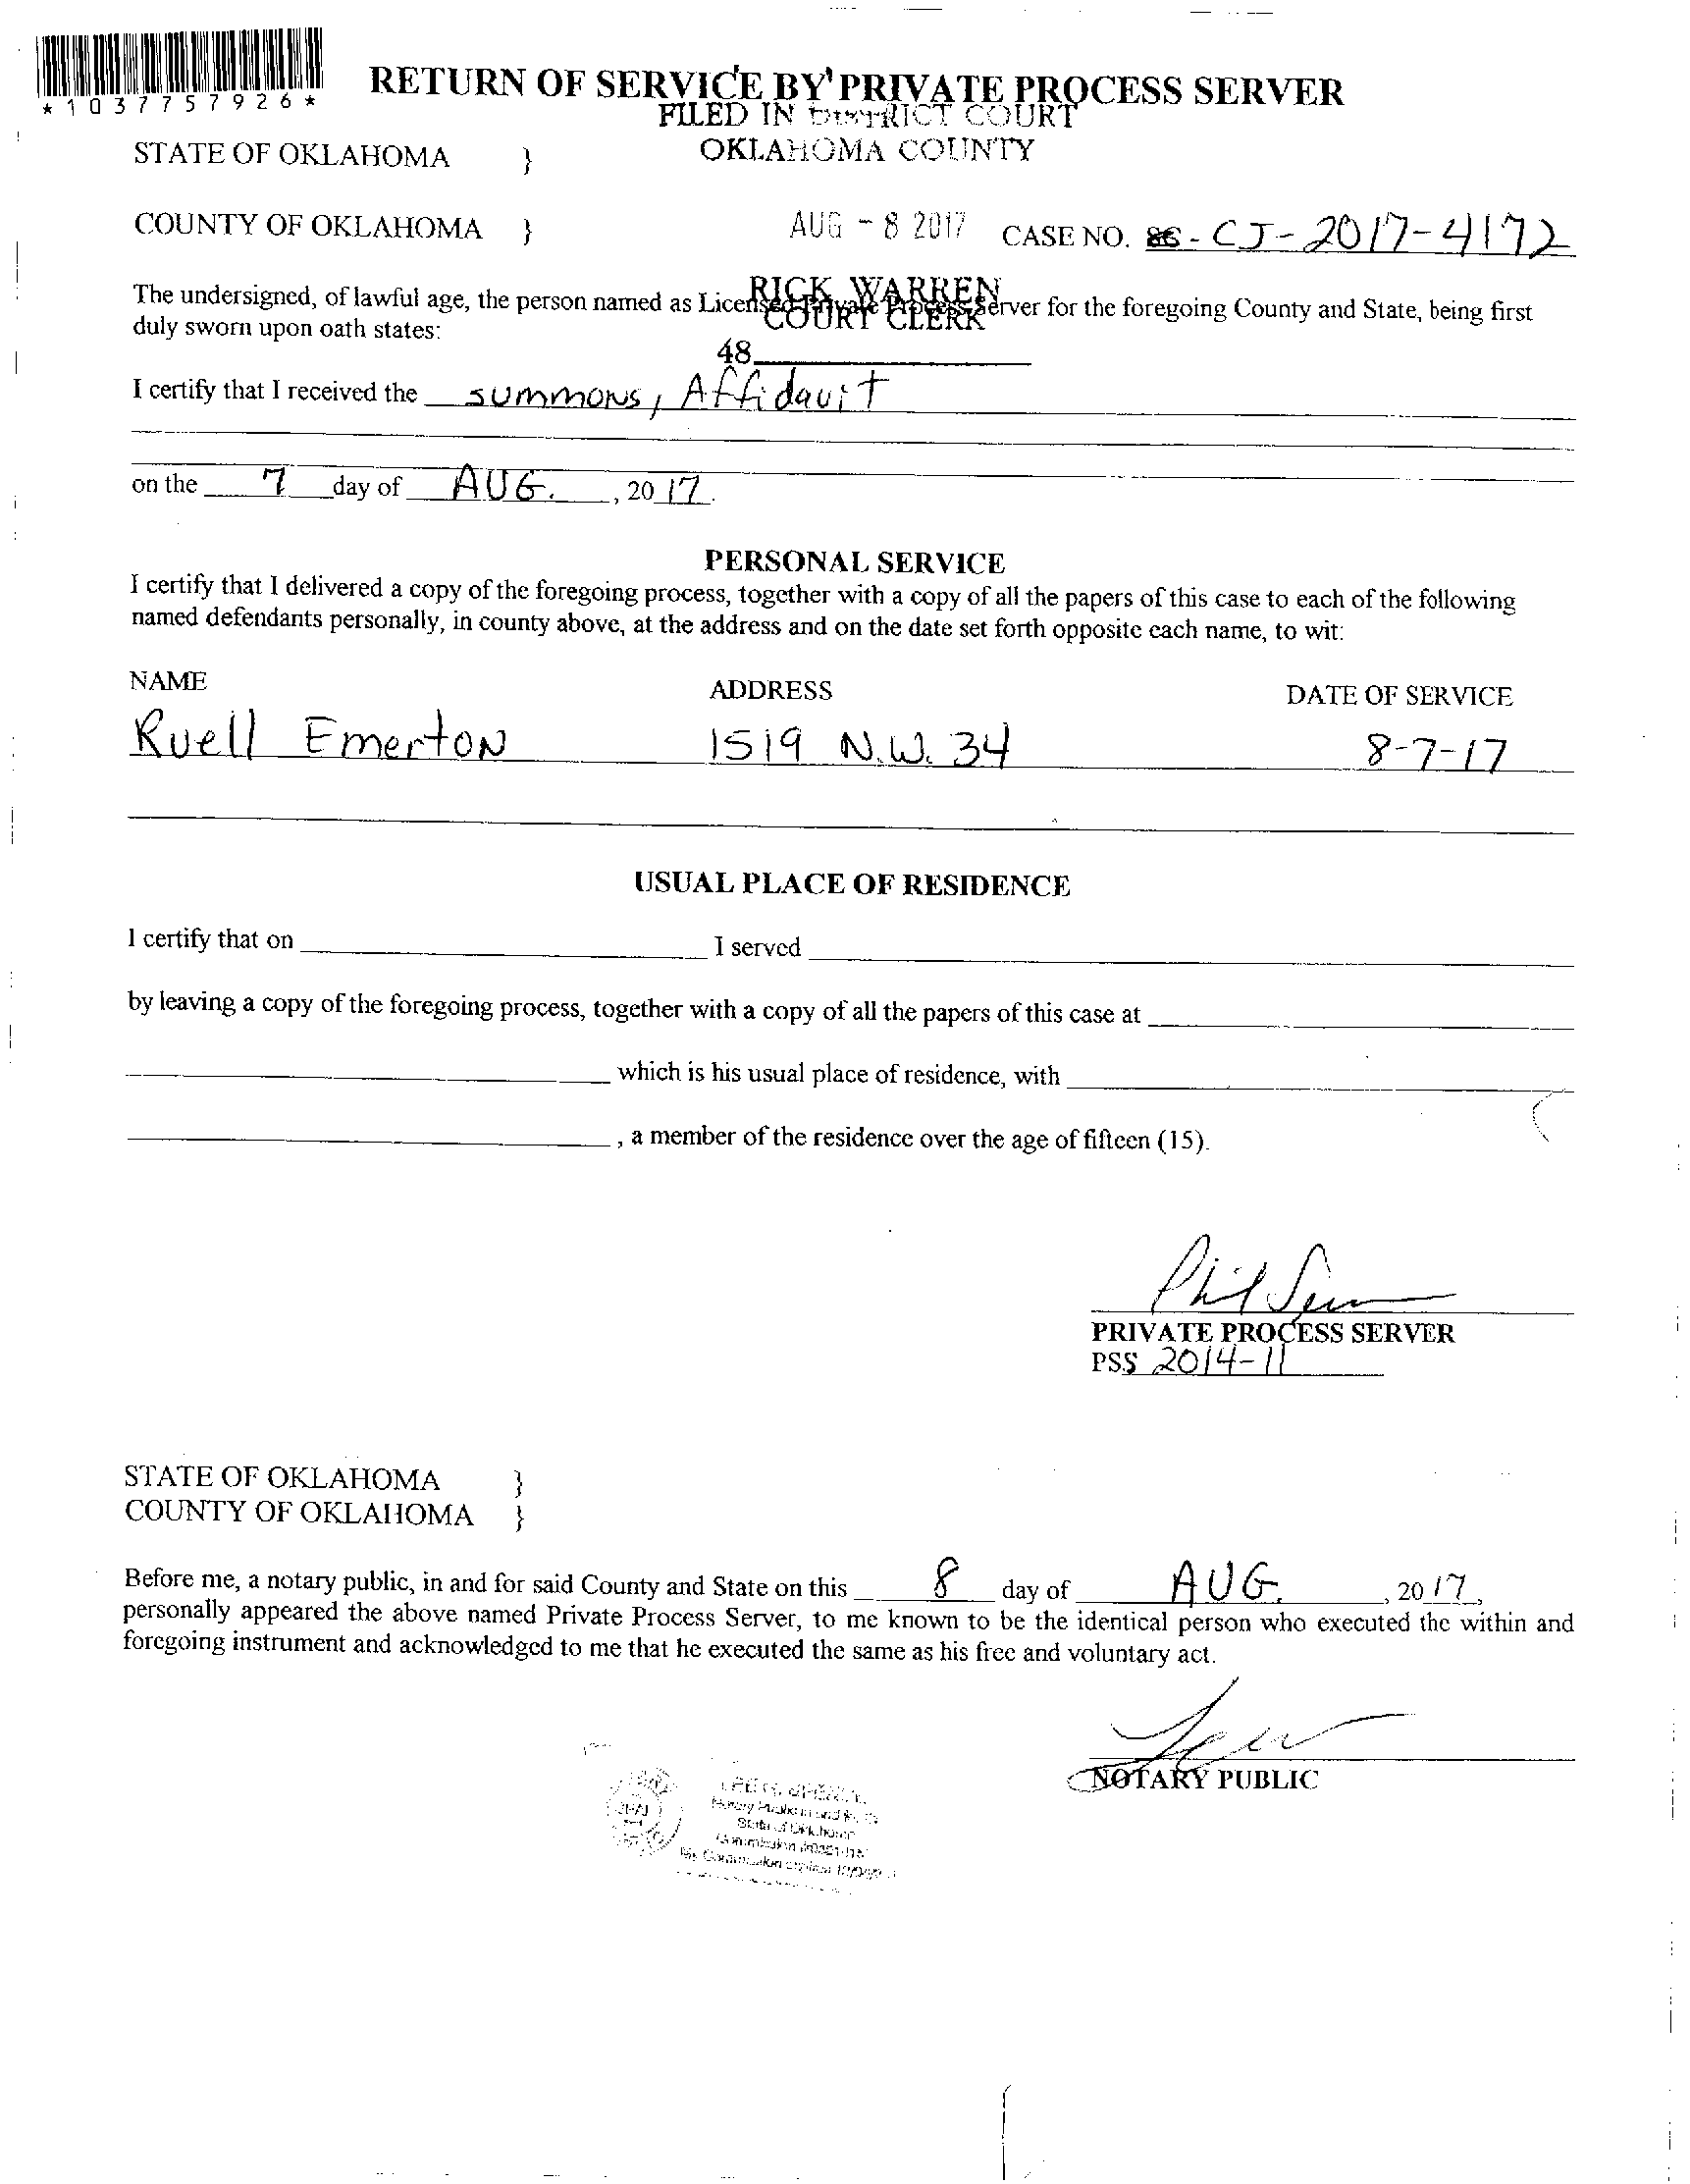 RETURN OF SERVICE BY PRIVATE PROCESS SERVER
*1037757926*
FILED IN DISTRICT COURT
STATE OF OKLAHOMA } OKLAHOMA COUNTY
COUNTY OF OKLAHOMA } AUG - 8 2017 CASE NO. - CJ-2017-4172
RICK WARREN
The undersigned, of lawful age, the person named as Licensed Private Process Server for the foregoing County and State, being first
COURT CLERK
duly sworn upon oath states:
48
I certify that I received the summons, Affidavit
on the 7 day of AUG., 2017.
PERSONAL SERVICE
I certify that I delivered a copy of the foregoing process, together with a copy of all the papers of this case to each of the following
named defendants personally, in county above, at the address and on the date set forth opposite each name, to wit:
NAME ADDRESS DATE OF SERVICE
Ruell Emerton 1519 N.W. 34 8-7-17
USUAL PLACE OF RESIDENCE
I certify that on I served
by leaving a copy of the foregoing process, together with a copy of all the papers of this case at
which is his usual place of residence, with
, a member of the residence over the age of fifteen (15).
Phil
PRIVATE PROCESS SERVER
PSS 2014-11
STATE OF OKLAHOMA }
COUNTY OF OKLAHOMA }
Before me, a notary public, in and for said County and State on this 8 day of AUG., 2017,
personally appeared the above named Private Process Server, to me known to be the identical person who executed the within and
foregoing instrument and acknowledged to me that he executed the same as his free and voluntary act.
NOTARY PUBLIC
Notary Public in and
State of Oklahoma
Commission
My Commission expires